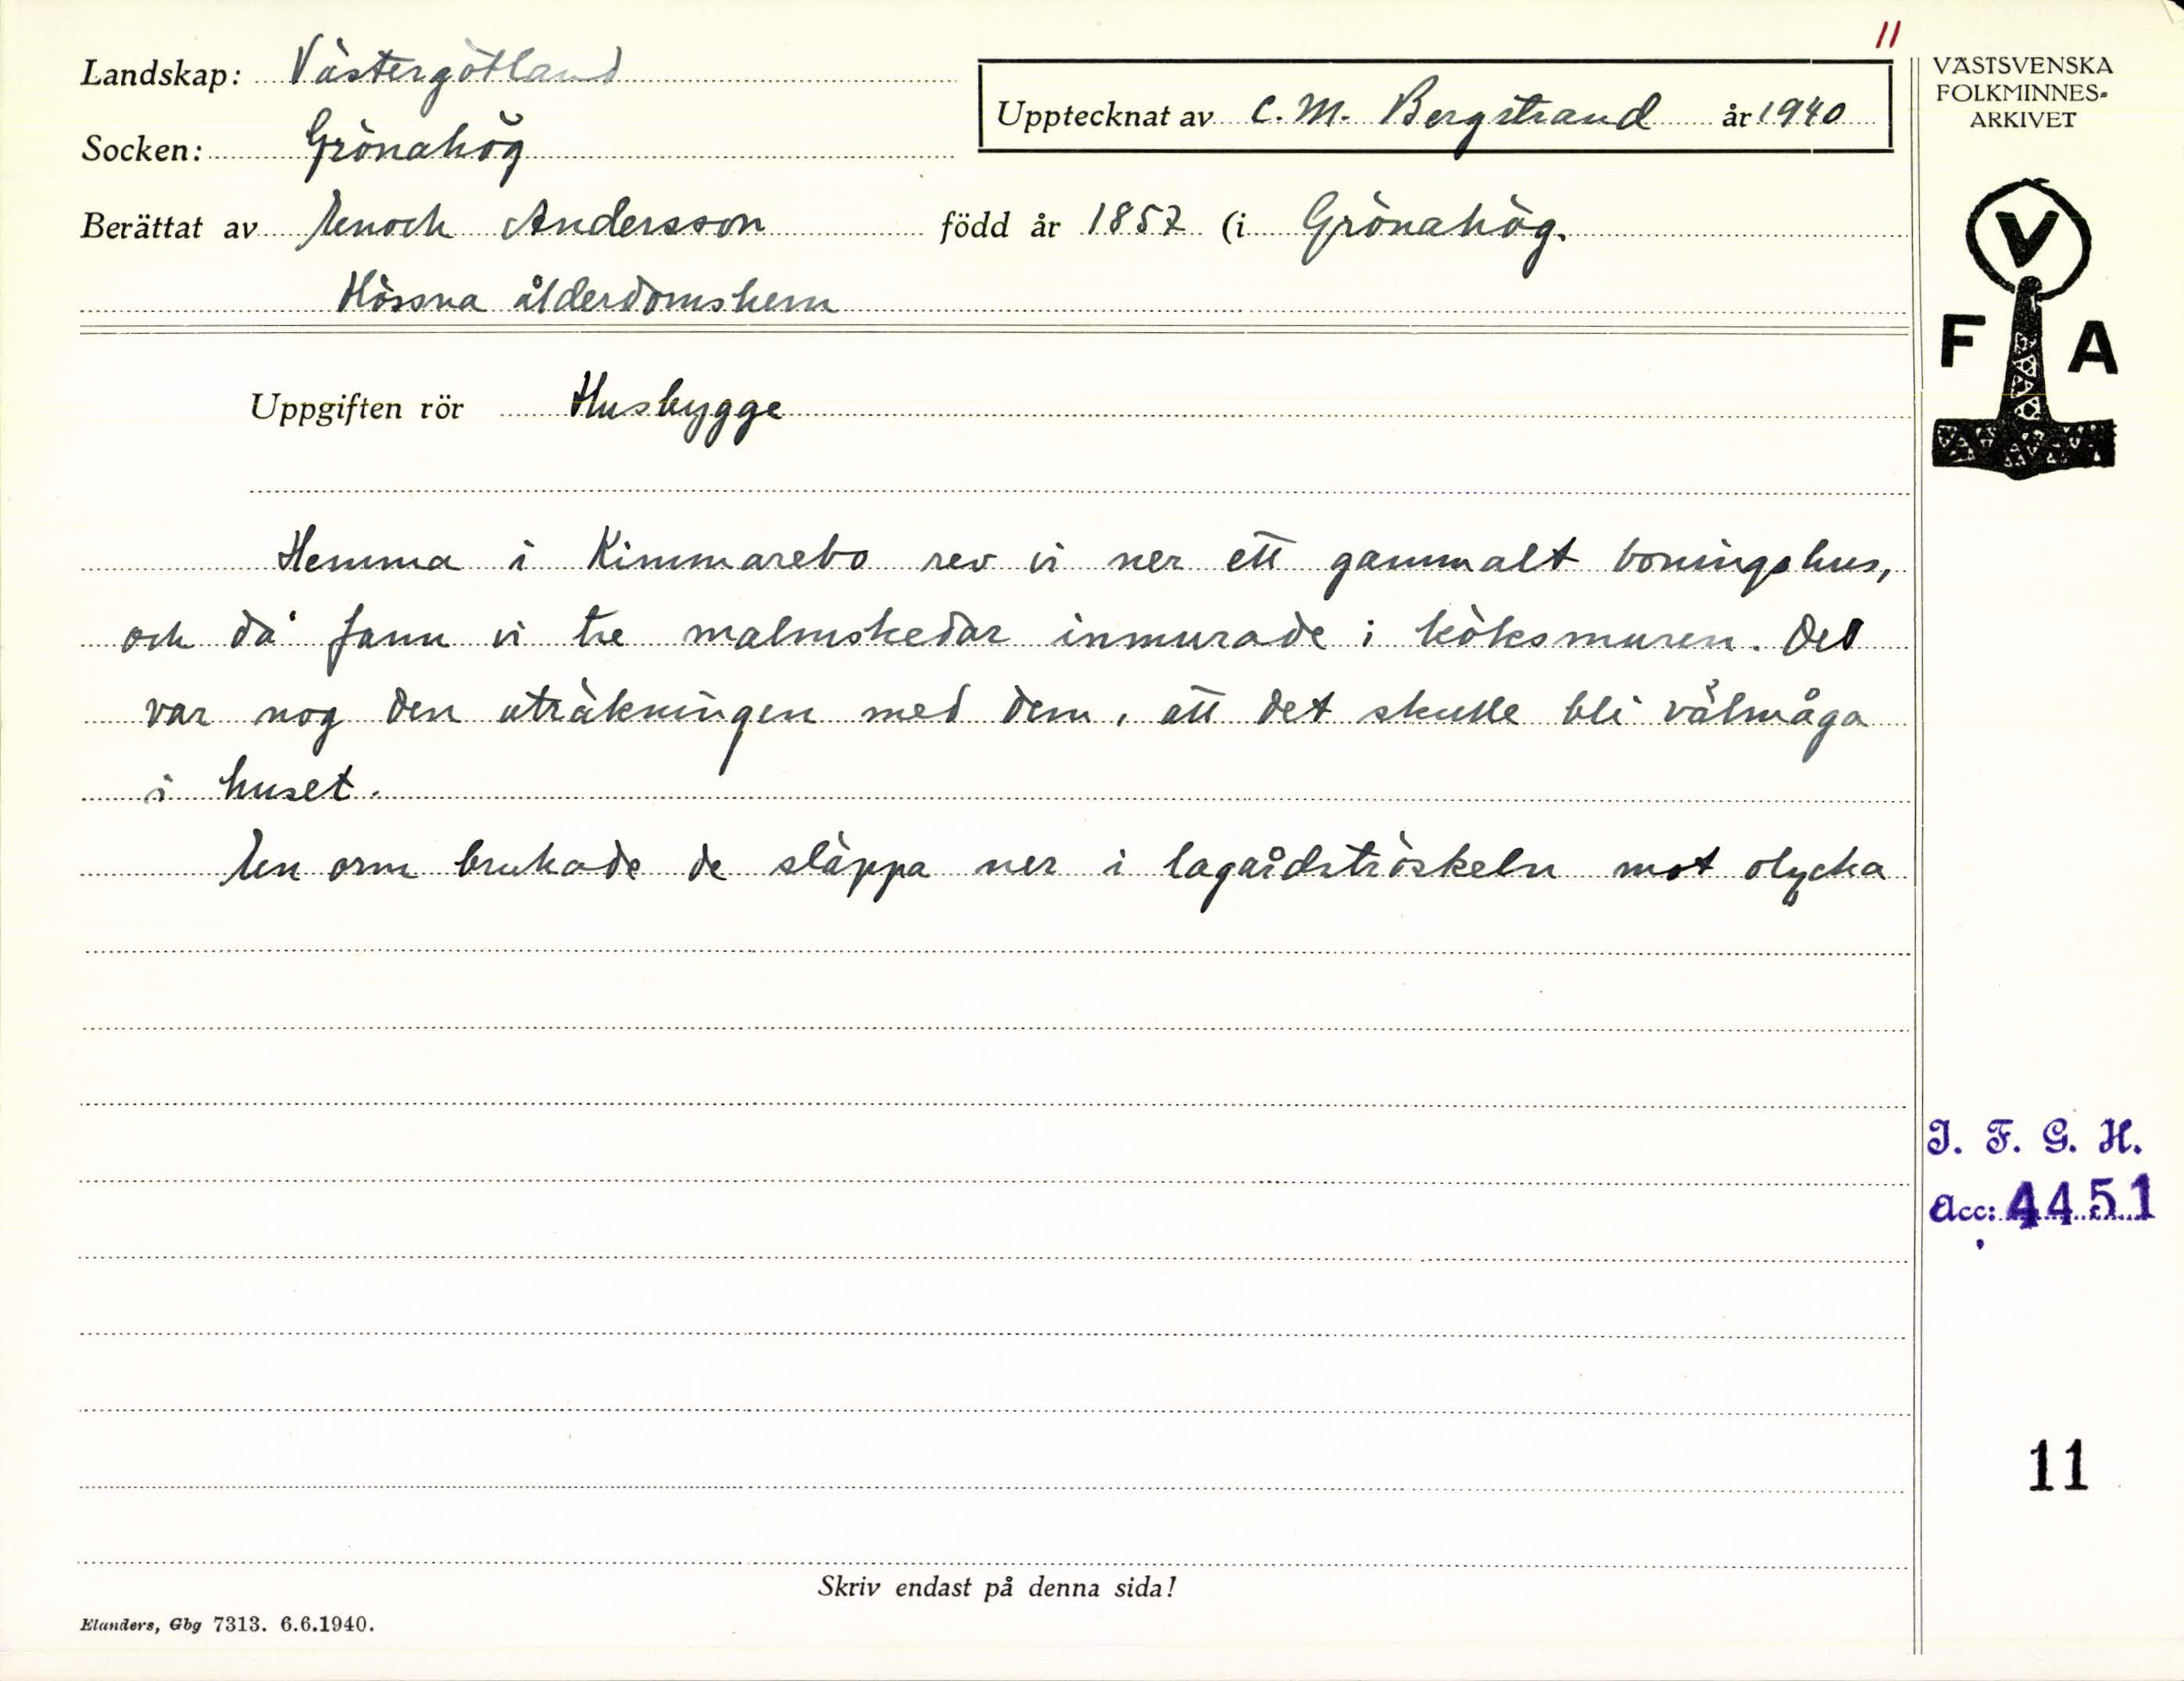 11
Landskap: Västergötland
Upptecknat av C. M. Bergstrand år 1940
Socken: Grönahög
Berättat av Enoch Andersson född år 1857 (i Grönahög.
Hössna ålderdomshem
Uppgiften rör Husbygge
Hemma i Kimmarebo rev vi ner ett gammalt boningshus,
och då fann vi tre malmskedar inmurade i köksmuren. Det
var nog den uträkningen med dem, att det skulle bli välmåga
i huset.
En orm brukade de släppa ner i lagårdströskeln mot olycka
Skriv endast på denna sida!
Elanders, Gbg 7313. 6.6.1940.
VÄSTSVENSKA
FOLKMINNES-
ARKIVET
V
F A
I. F. G. H.
Acc: 4451
11